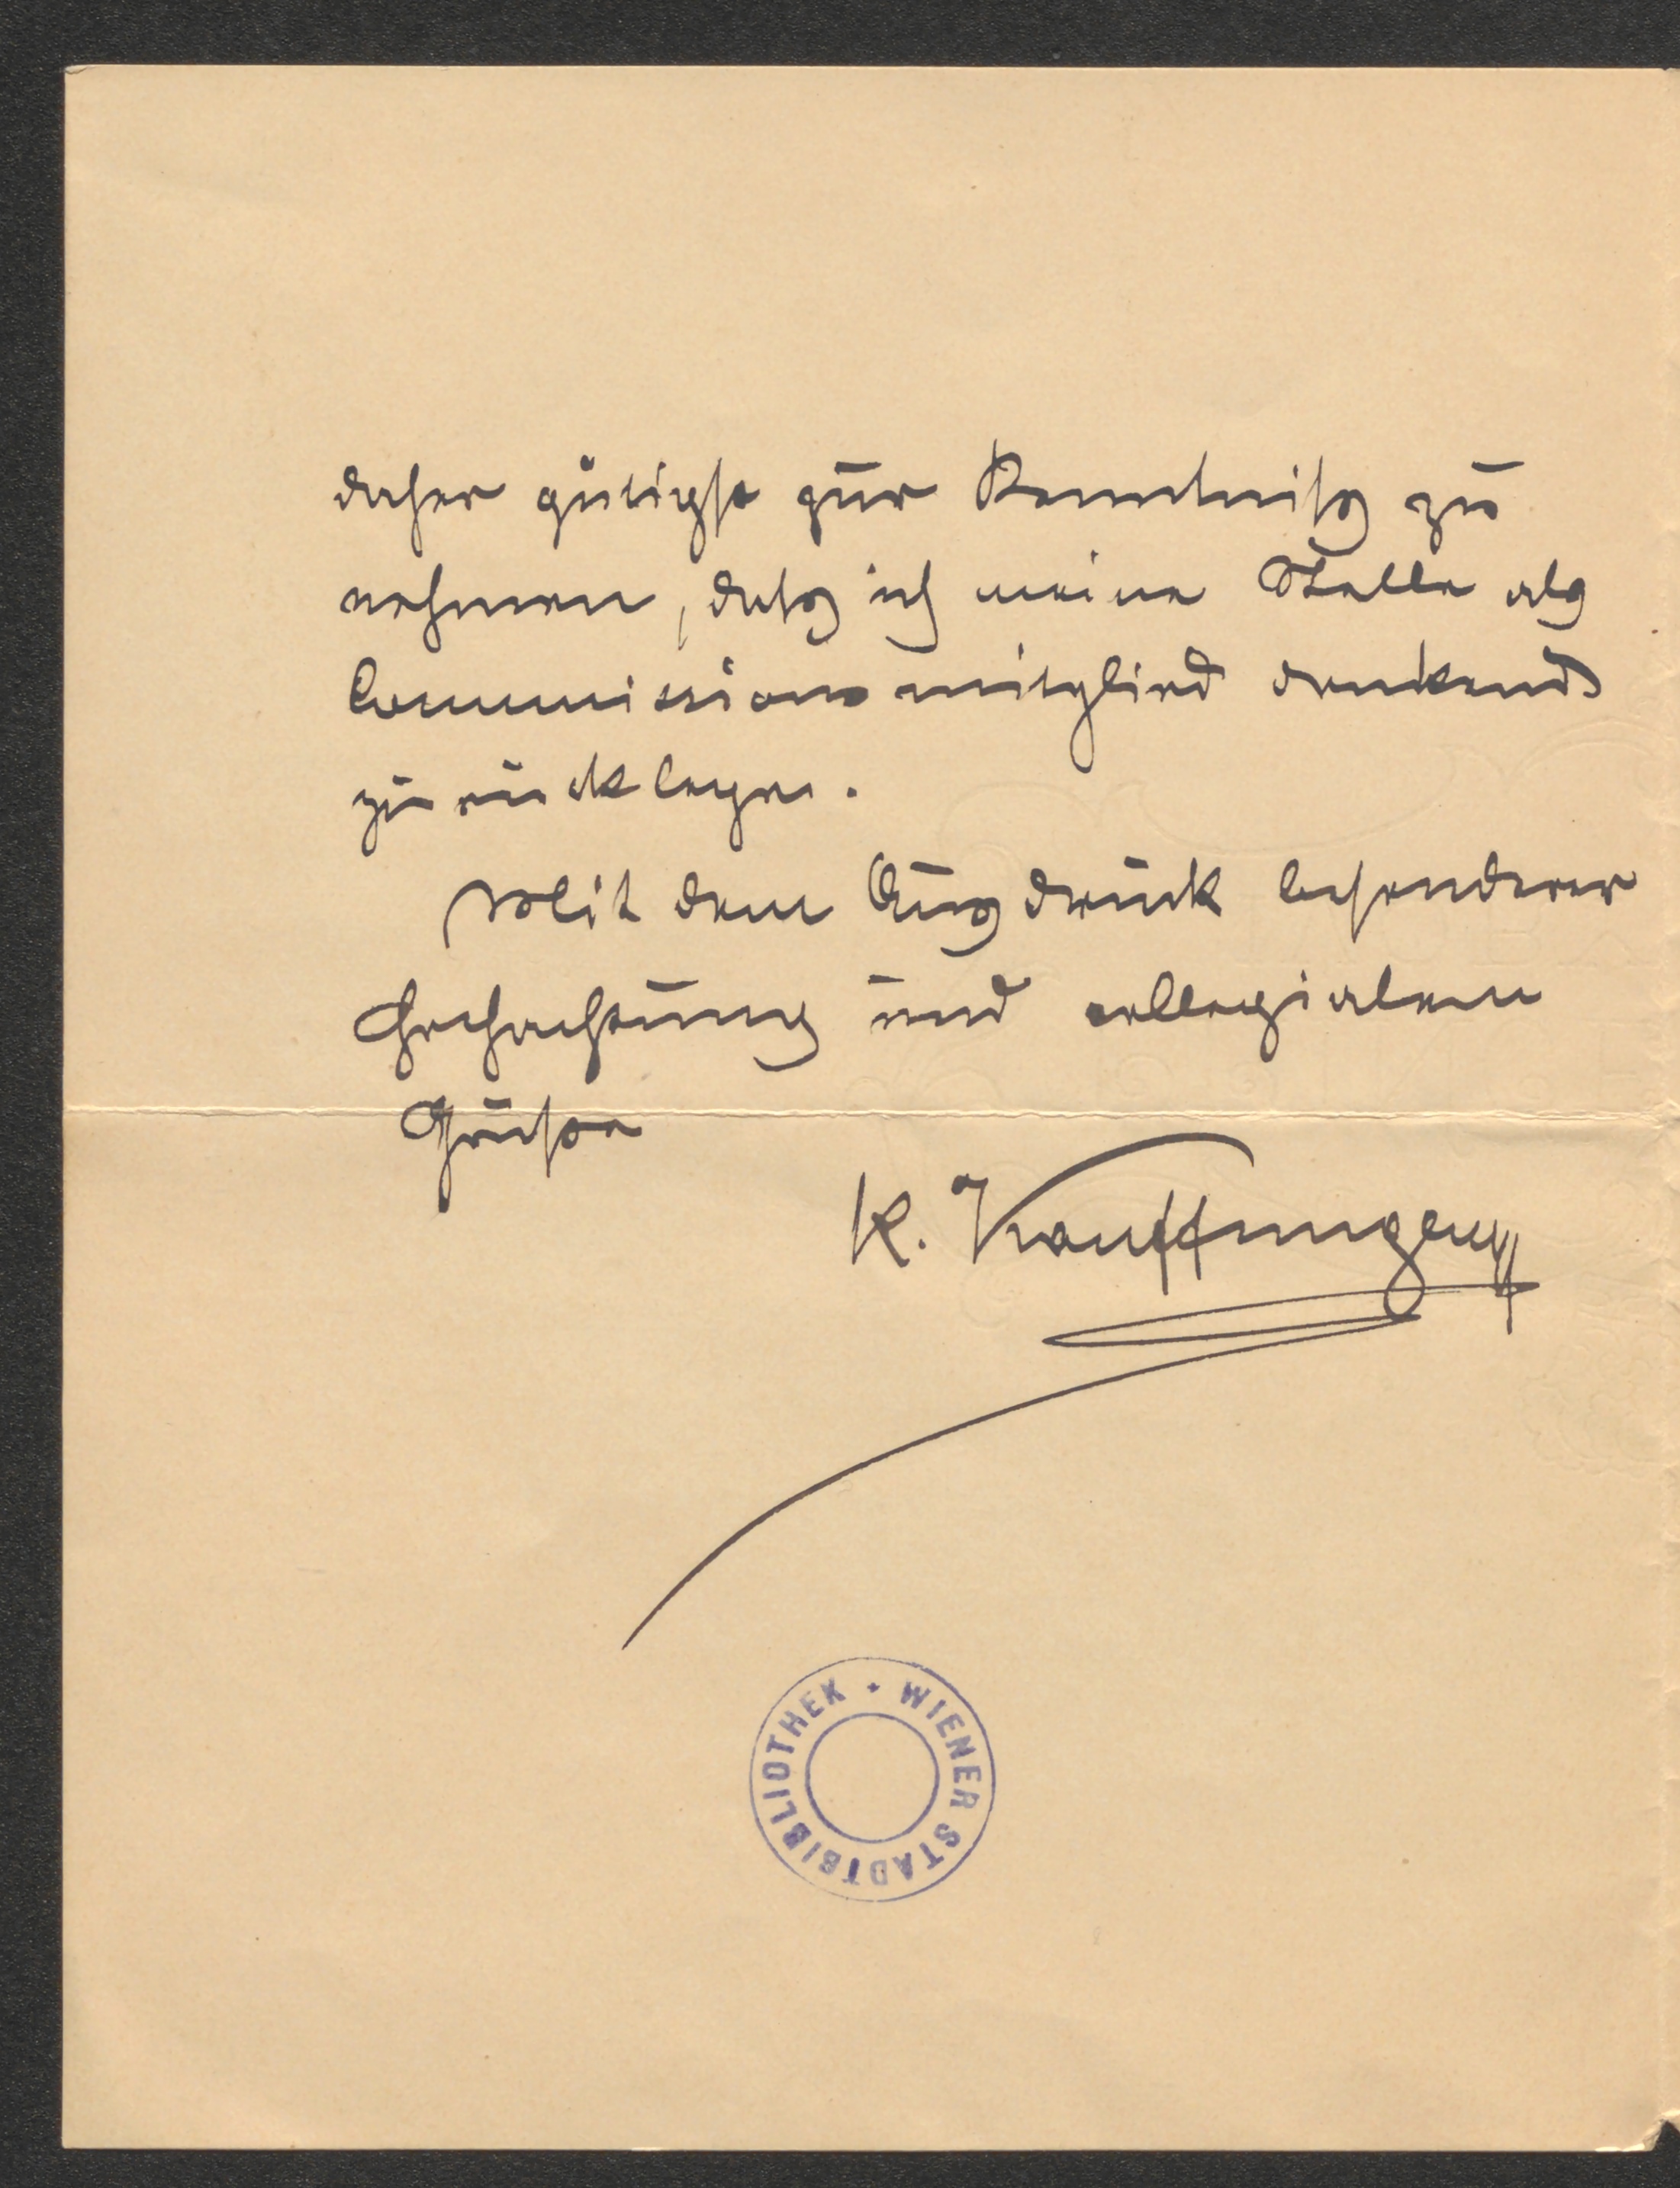 daher gütigst zur Kenntniß zu
nehmen, daß ich meine Stelle als
Commissionsmitglied dankend
zurücklege.
Mit dem Ausdruck besonderer
Hochachtung und collegialem
Gruße
K. Kauffungen
WIENER STADTBIBLIOTHEK